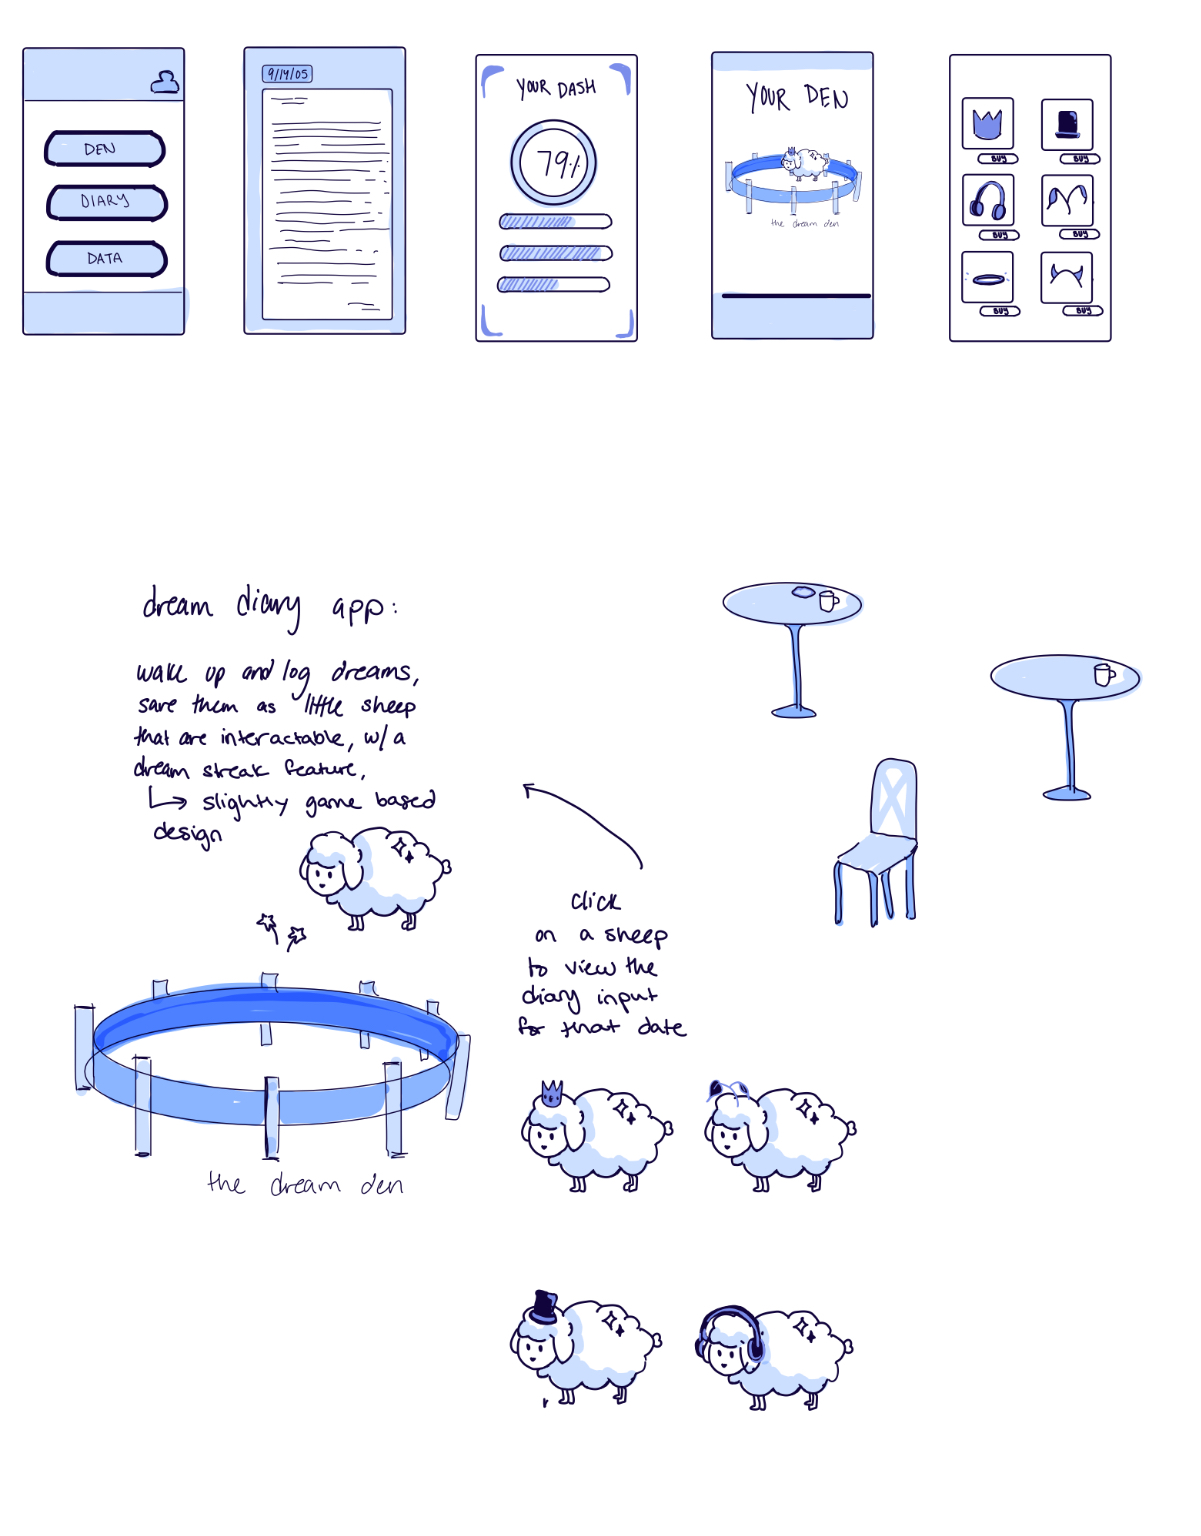 DEN
DIARY
DATA
9/14/05
YOUR DASH
79%
YOUR DEN
the dream den
BUY
BUY
BUY
BUY
BUY
BUY
dream diary app:
wake up and log dreams,
save them as little sheep
that are interactable, w/ a
dream streak feature,
↳ slightly game based
design
the dream den
click
on a sheep
to view the
diary input
for that date